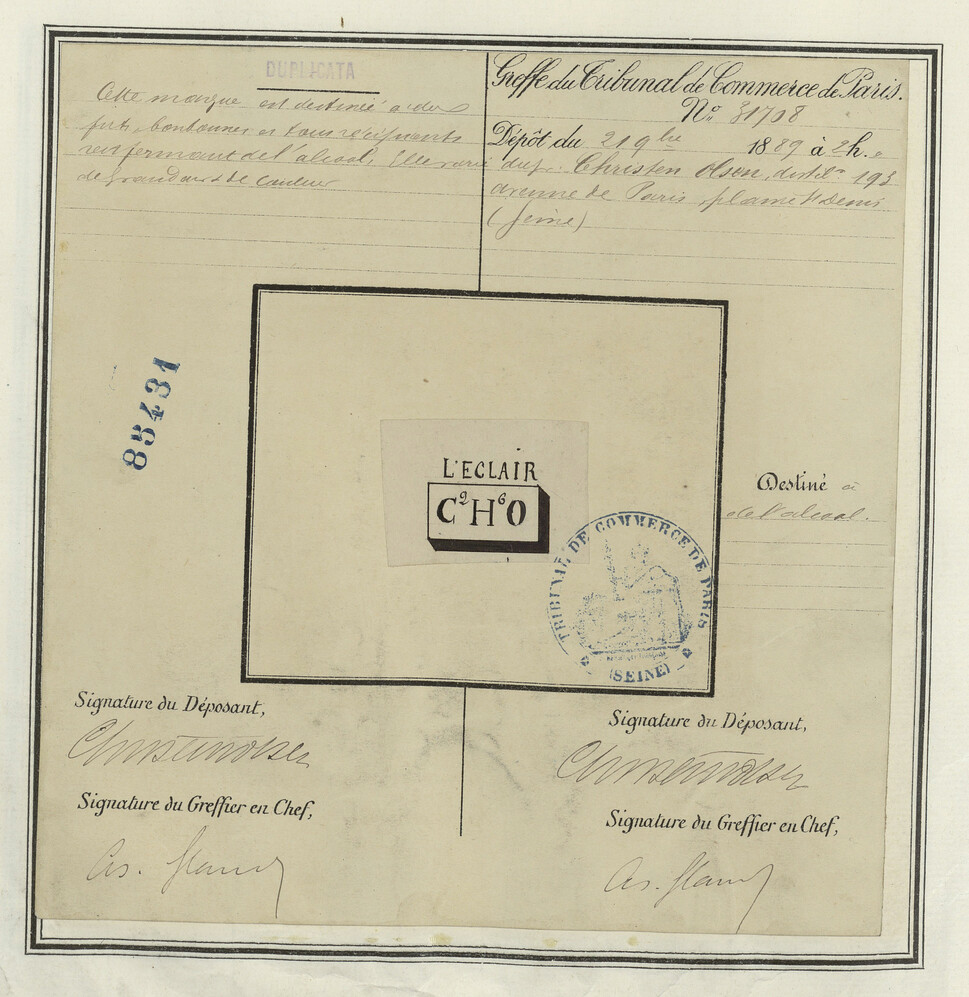 DUPLICATA
Cette marque est destinée à des
futs, bonbonnes et tous récipients
renfermant de l'alcool. Elle varie
de grandeur et de couleur
Greffe du Tribunal de Commerce de Paris.
No. 31708
Dépôt du 21 9bre 1889 à 2h.
du sr. Christen Olsen, distilr 193
avenue de Paris, plaine St Denis
(Seine)
85431
L'ECLAIR
C2H6O
TRIBUNAL DE COMMERCE DE PARIS
(SEINE)
Destiné à
de l'alcool.
Signature du Déposant,
Christen Olsen
Signature du Greffier en Chef,
Signature du Déposant,
Christen Olsen
Signature du Greffier en Chef,